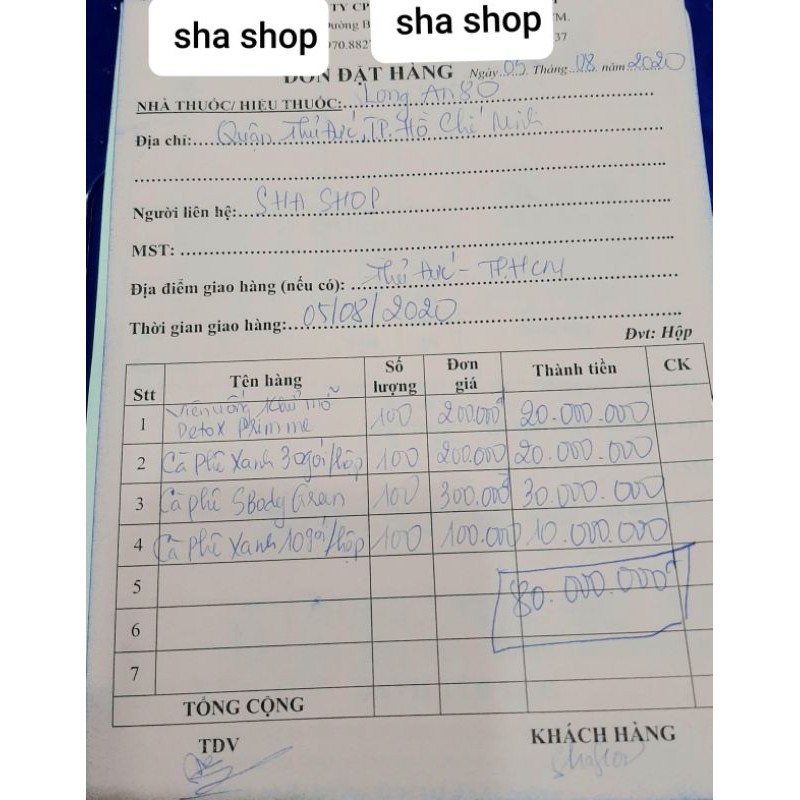 sha shop
sha shop
TY CP
TM.
ường B
970.882
37
ĐƠN ĐẶT HÀNG Ngày 05 Tháng 08 năm 2020
NHÀ THUỐC/ HIỆU THUỐC: Long An 80
Địa chỉ: Quận Thủ Đức, TP. Hồ Chí Minh
Người liên hệ: SHA SHOP
MST:
Địa điểm giao hàng (nếu có): Thủ Đức - TP.HCM
Thời gian giao hàng: 05/08/2020
Đvt: Hộp
Stt Tên hàng Số lượng Đơn giá Thành tiền CK
1 Viên uống khử mỡ Detox Primme 100 200.000đ 20.000.000
2 Cà phê Xanh 30gói/hộp 100 200.000 20.000.000
3 Cà phê SBody Green 100 300.000đ 30.000.000
4 Cà Phê Xanh 10gói/hộp 100 100.000 10.000.000
5 80.000.000đ
6
7
TỔNG CỘNG
TDV KHÁCH HÀNG